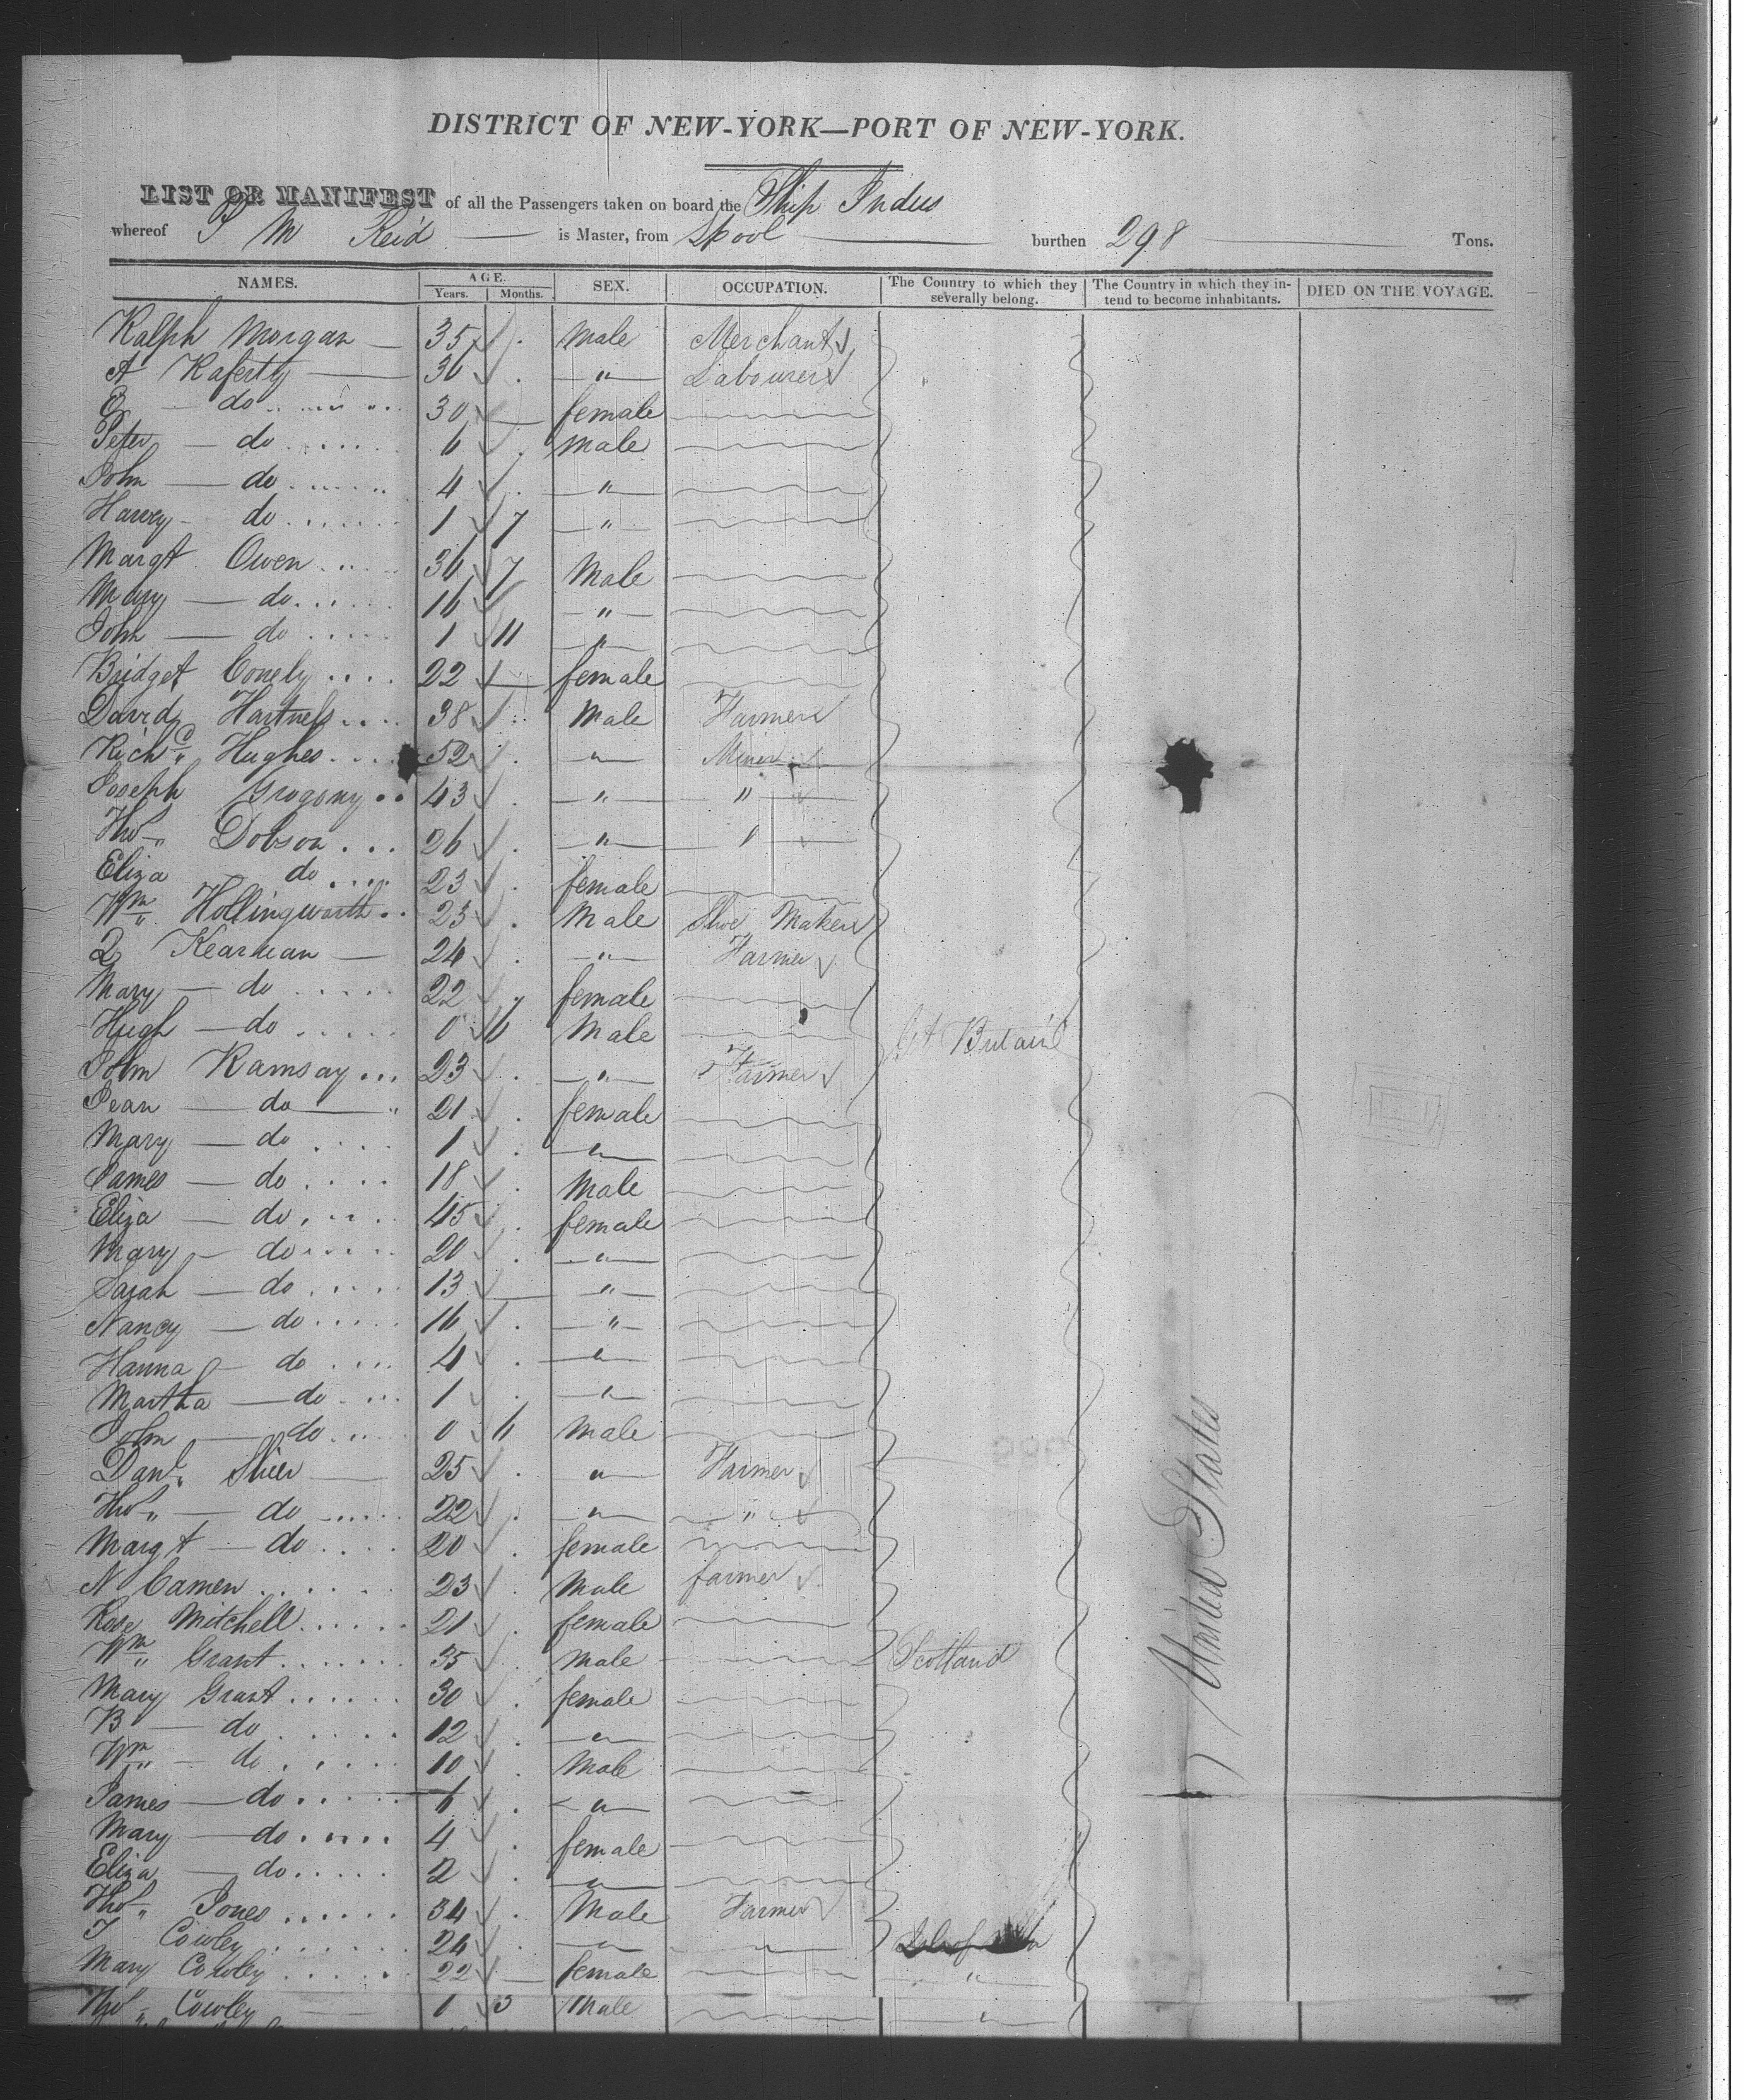 DISTRICT OF NEW-YORK—PORT OF NEW-YORK.
LIST OR MANIFEST of all the Passengers taken on board the Ship Indus
whereof P M Reid is Master, from Lpool burthen 298 Tons.
NAMES. AGE. Years. Months. SEX. OCCUPATION. The Country to which they severally belong. The Country in which they intend to become inhabitants. DIED ON THE VOYAGE.
Ralph Morgan 35 Male Merchant
A Raferty 36 " Labourer
E do 30 female
Peter do 6 male
John do 4 "
Harry do 1 7 "
Margt Owen 36 7 Male
Mary do 16 "
John do 1 11 "
Bridget Conely 22 female
David Hartnels 38 Male Farmer
Richd Hughes 52 " Miner
Joseph Grogony 43 " "
Thos Dobson 26 " "
Eliza do 23 female
Wm Hollingworth 23 Male Shoe Maker
Kearnan 24 " Farmer
Mary do 22 female
Hugh do 0 6 Male Gt Britain
John Ramsay 23 " Farmer
Jean do 21 female
Mary do 1 "
James do 18 Male
Eliza do 45 female
Mary do 20 "
Sarah do 13 "
Nancy do 16 "
Hanna do 4 "
Martha do 1 "
John do 0 6 Male
Danl 25 " Farmer
Thos do 22 " "
Margt do 20 female
N Camen 23 Male farmer
Rose Mitchell 21 female
Wm Grant 35 Male Scotland
Mary Grant 30 female
B do 12 "
Wm do 10 Male
James do 6 "
Mary do 4 female
Eliza do 2 "
Thos Jones 34 Male Farmer
T Cowley 24 " " Isle of
Mary Cowley 22 female "
Thos Cowley 1 3 Male "
United States